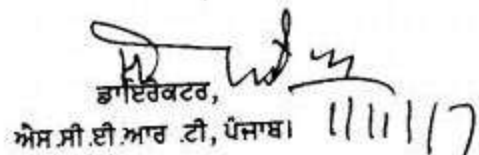 ਡਾਇਰੈਕਟਰ,
ਐਸ.ਸੀ.ਈ.ਆਰ .ਟੀ, ਪੰਜਾਬ। 1/11/17